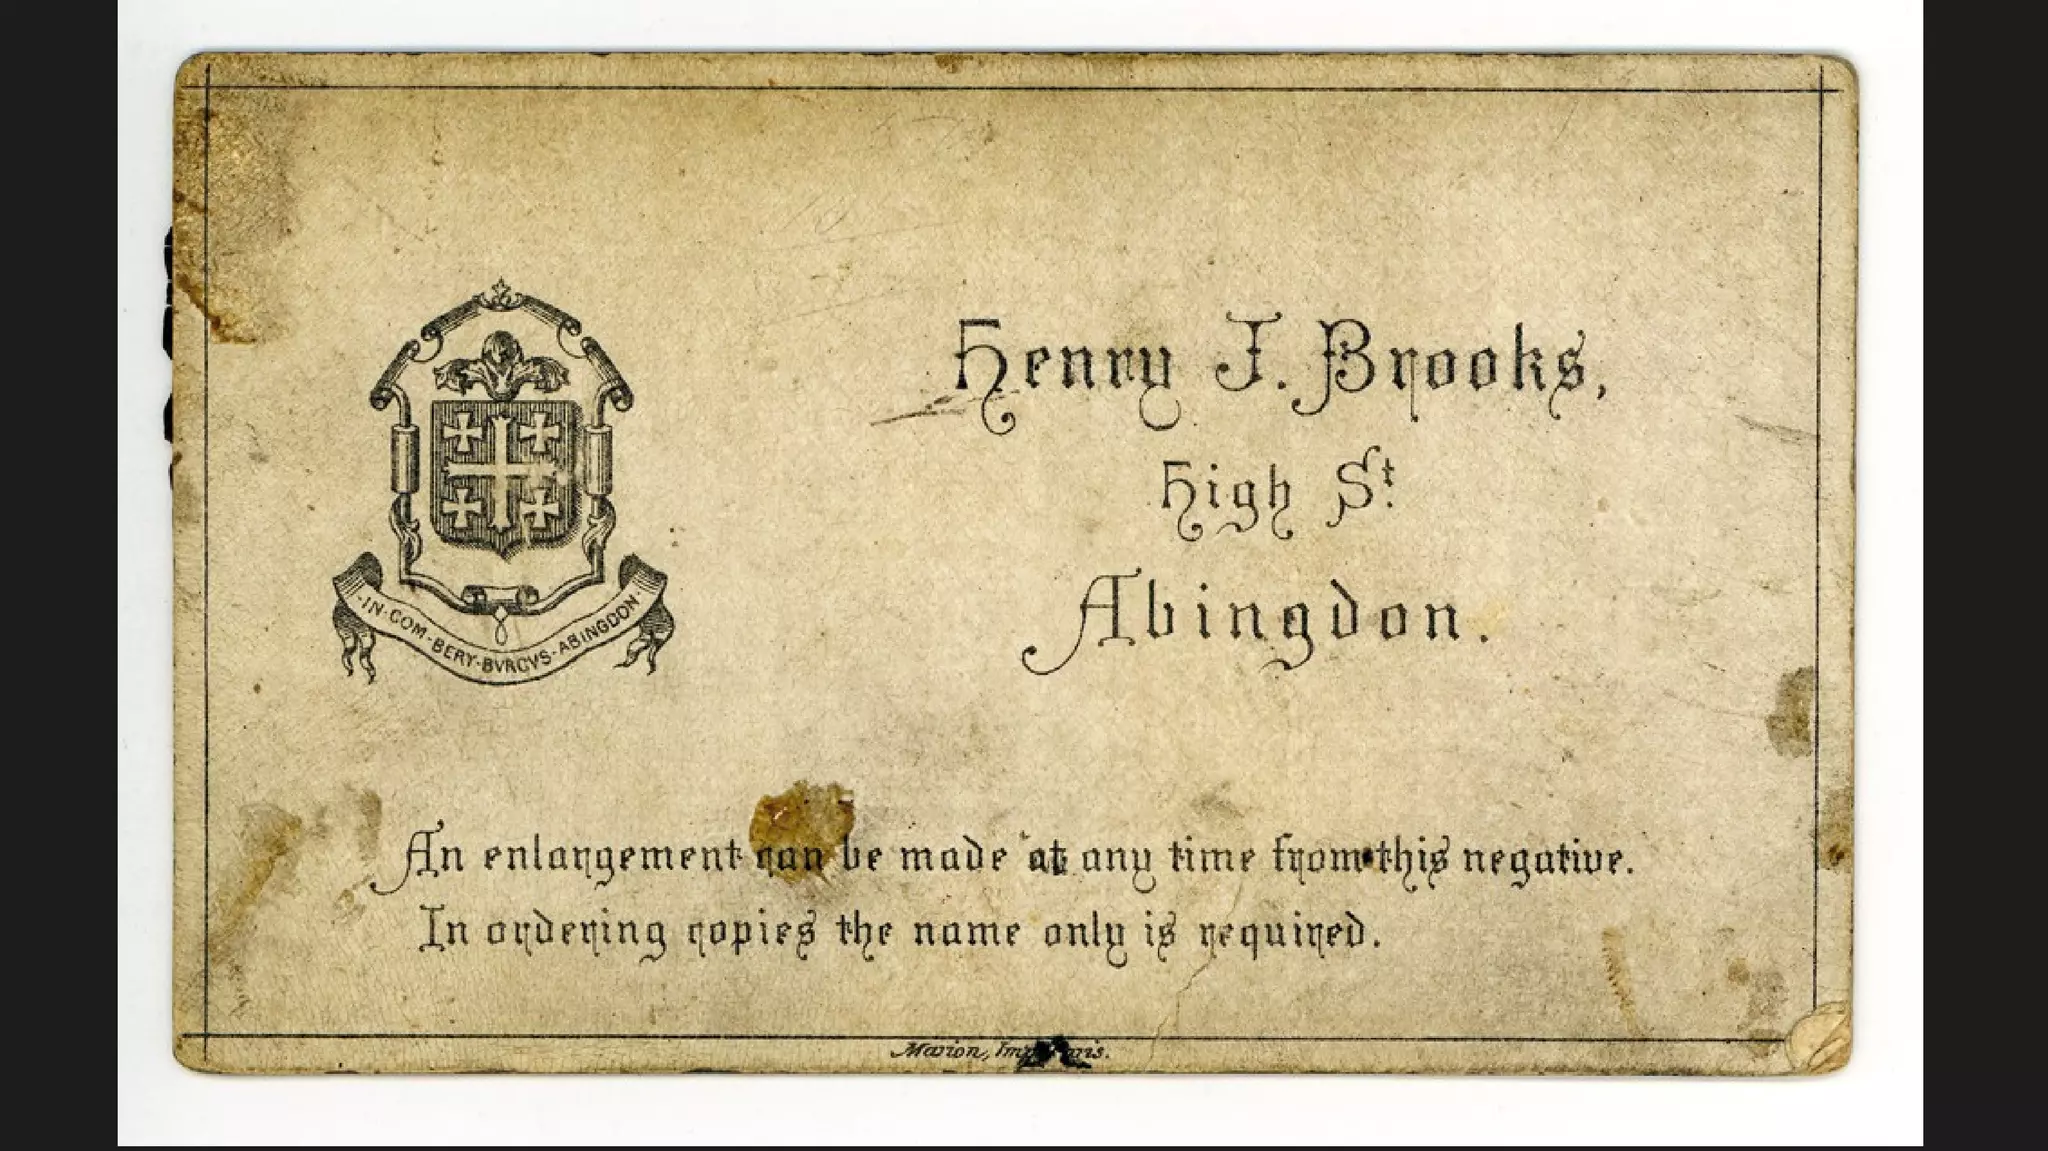 ·IN·COM·BERY·BVRCVS·ABINGDON·
Henry J. Brooks,
High St.
Abingdon.
An enlargement can be made at any time from this negative.
In ordering copies the name only is required.
Marion, Imp.